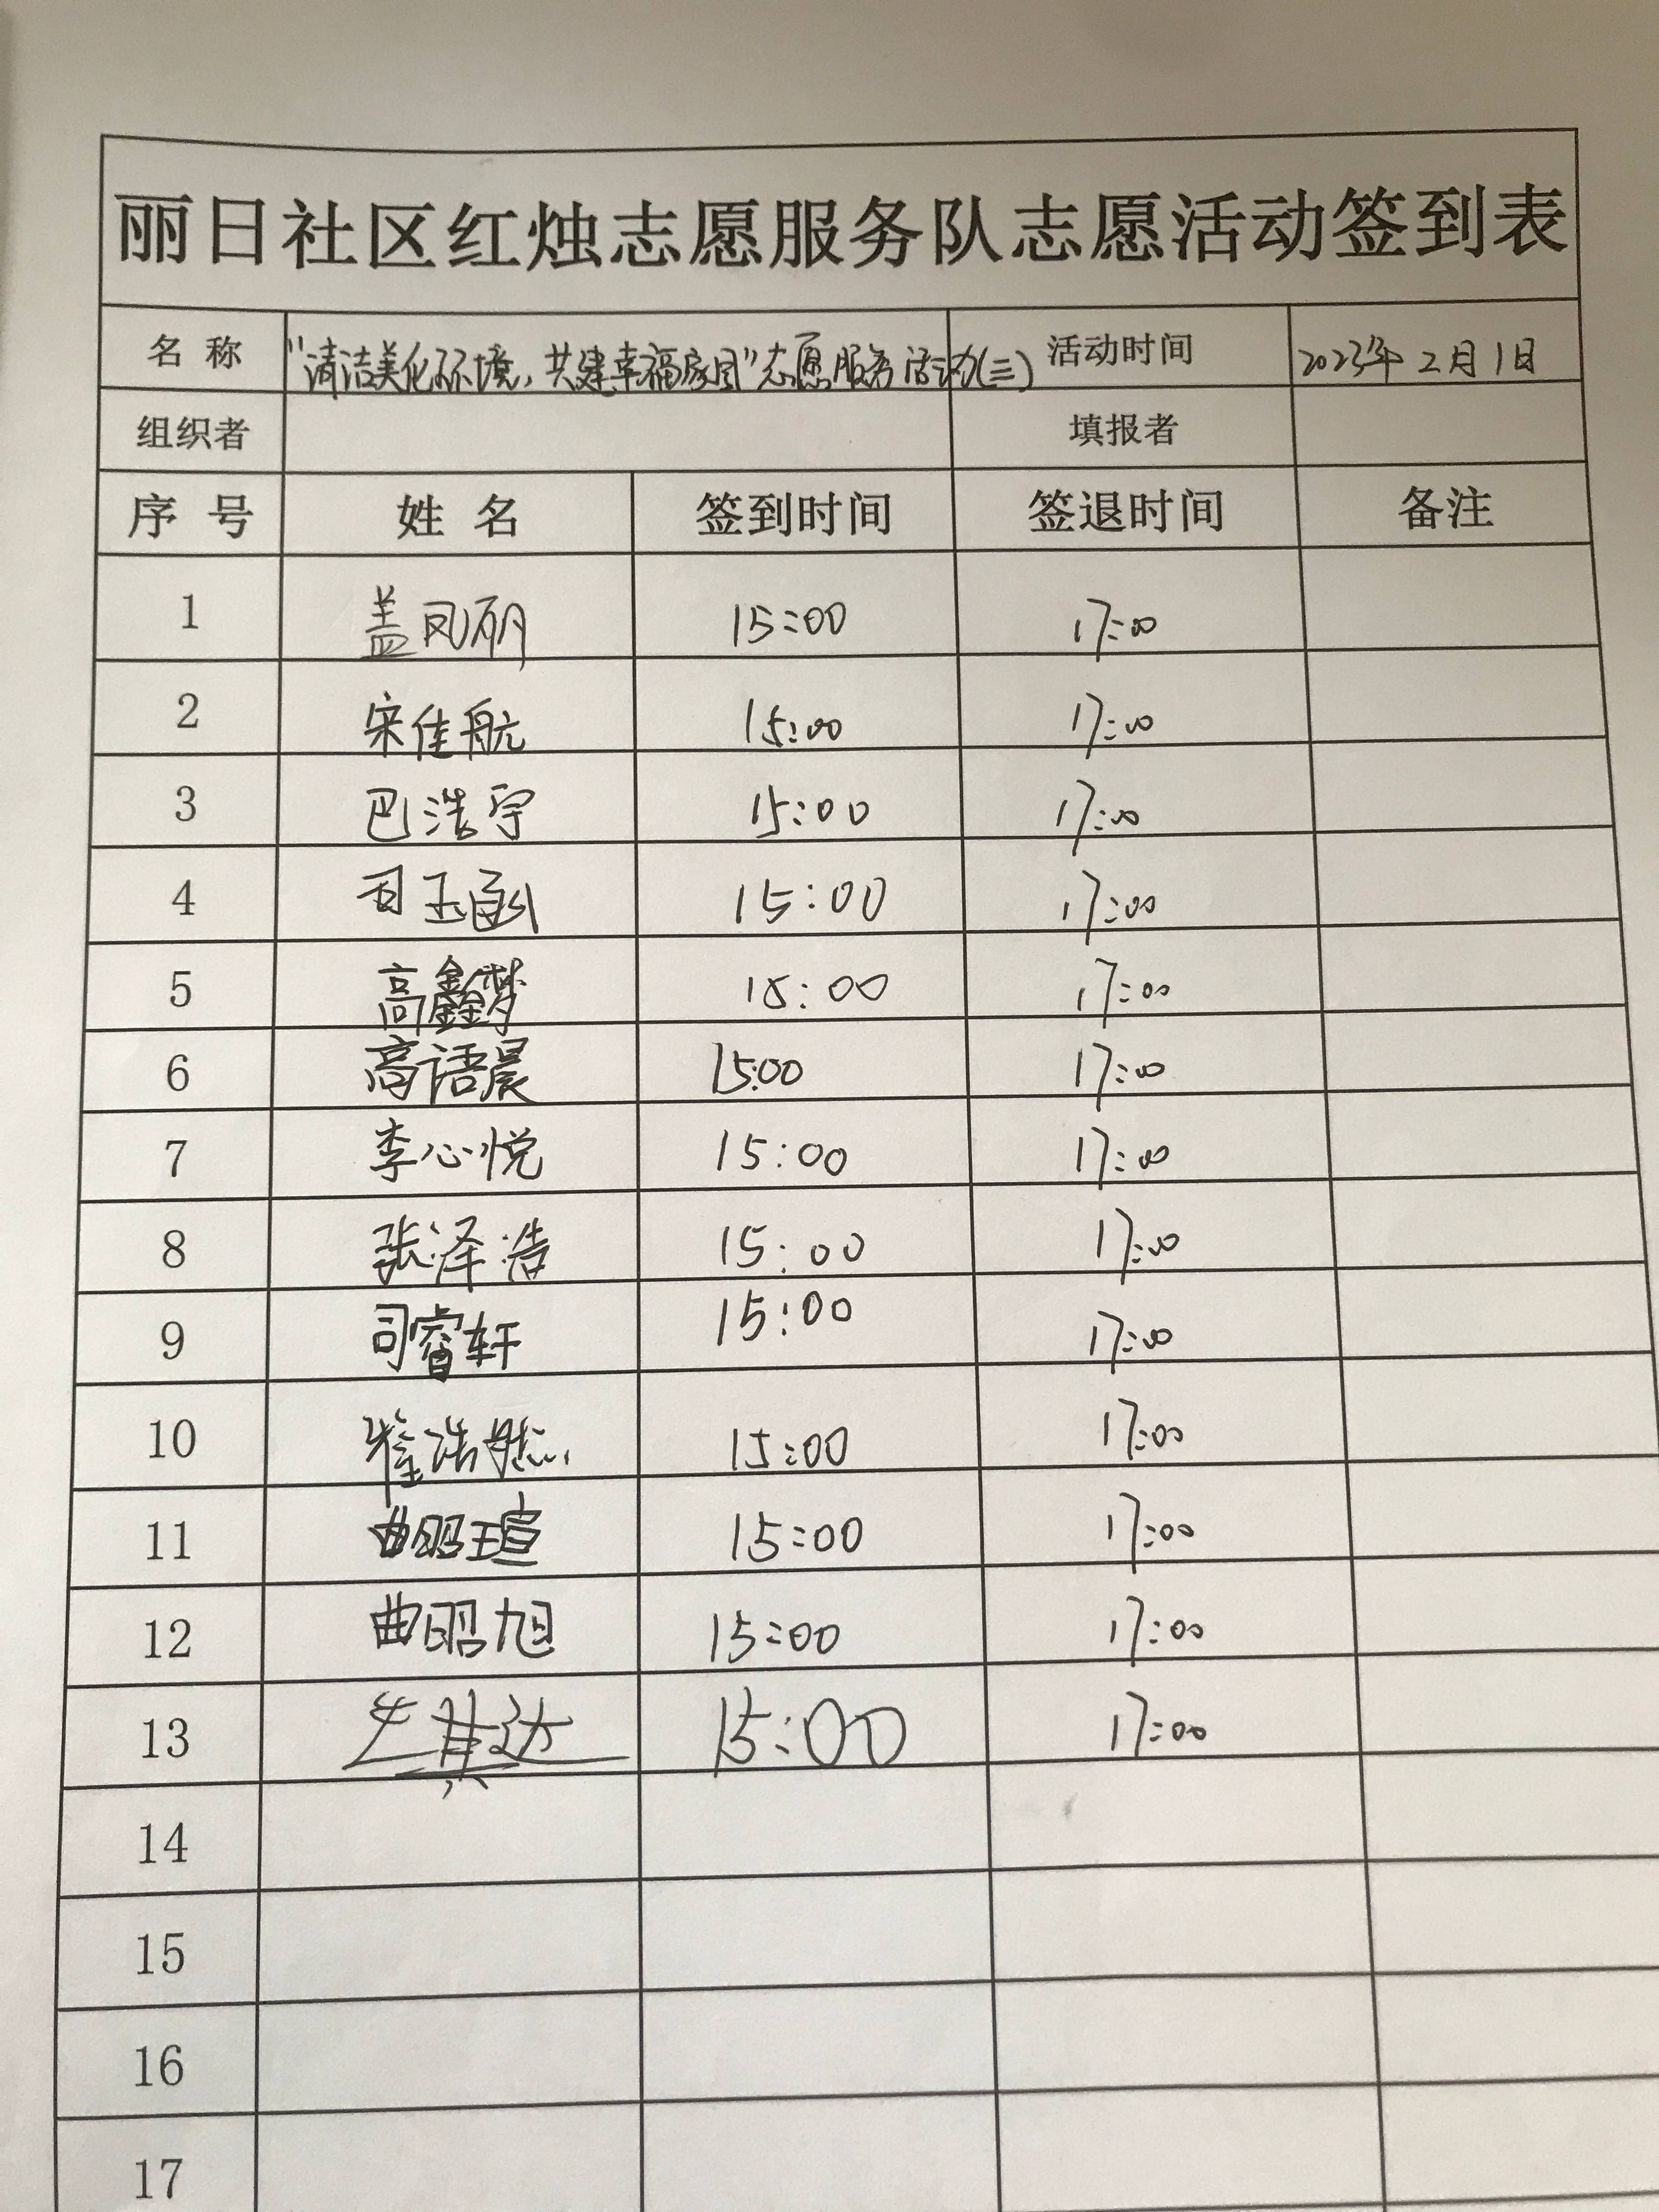 丽日社区红烛志愿服务队志愿活动签到表
名 称 “清洁美化环境，共建幸福家园”志愿服务活动(三) 活动时间 2023年2月1日
组织者 填报者
序 号 姓 名 签到时间 签退时间 备注
1 盖凤丽 15:00 17:00
2 宋佳航 15:00 17:00
3 巴浩宇 15:00 17:00
4 司玉函 15:00 17:00
5 高鑫梦 15:00 17:00
6 高语晨 15:00 17:00
7 李心悦 15:00 17:00
8 张泽浩 15:00 17:00
9 司睿轩 15:00 17:00
10 浩然 15:00 17:00
11 曲昭瑄 15:00 17:00
12 曲昭旭 15:00 17:00
13 15:00 17:00
14
15
16
17